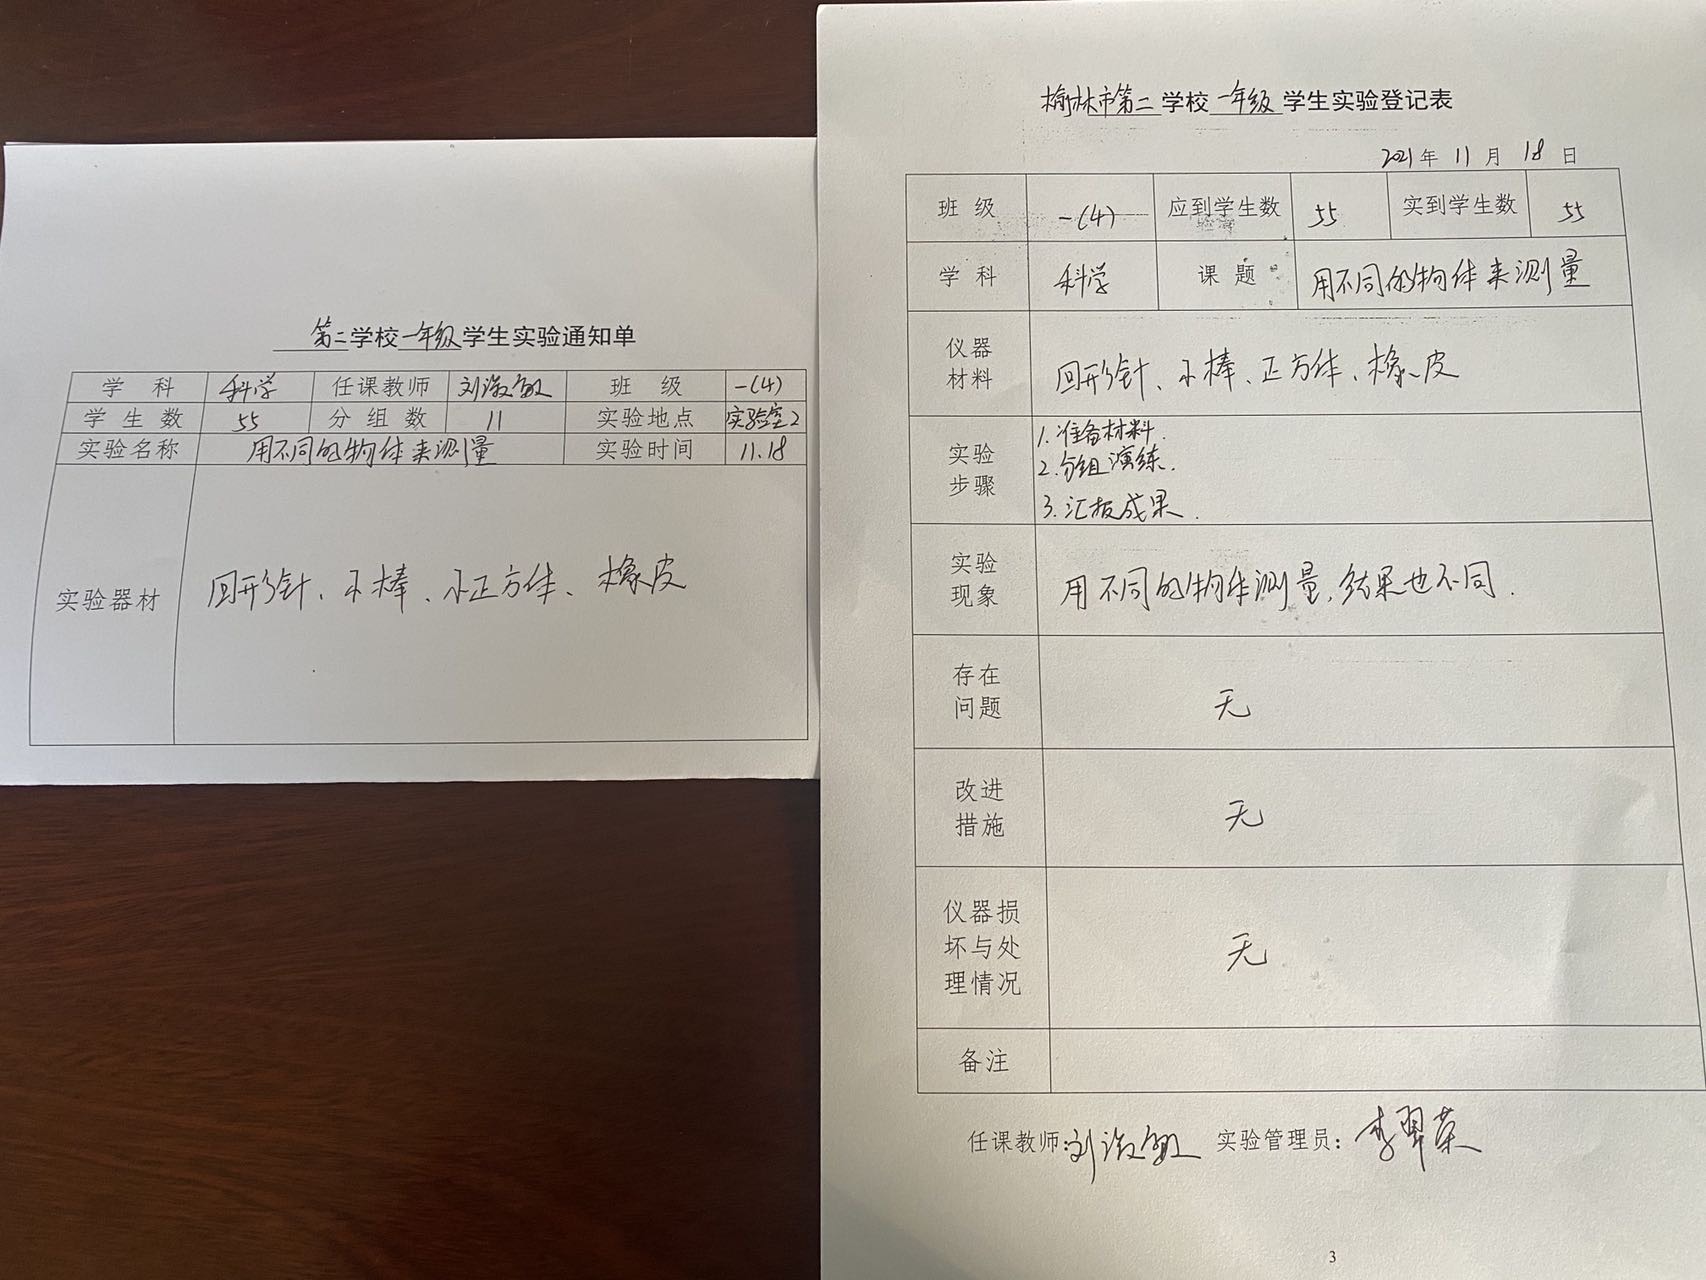 第二学校一年级学生实验通知单
学科 科学 任课教师 班级 一(4)
学生数 55 分组数 11 实验地点 实验室2
实验名称 用不同的物体来测量 实验时间 11.18
实验器材 回形针、小棒、小正方体、橡皮
榆林市第二学校一年级学生实验登记表
2021年11月18日
班级 一(4) 应到学生数 55 实到学生数 55
学科 科学 课题 用不同的物体来测量
仪器
材料
回形针、小棒、正方体、橡皮
实验
步骤
1.准备材料.
2.分组演练.
3.汇报成果.
实验
现象
用不同的物体测量,结果也不同.
存在
问题
无
改进
措施
无
仪器损
坏与处
理情况
无
备注
任课教师: 实验管理员:
3